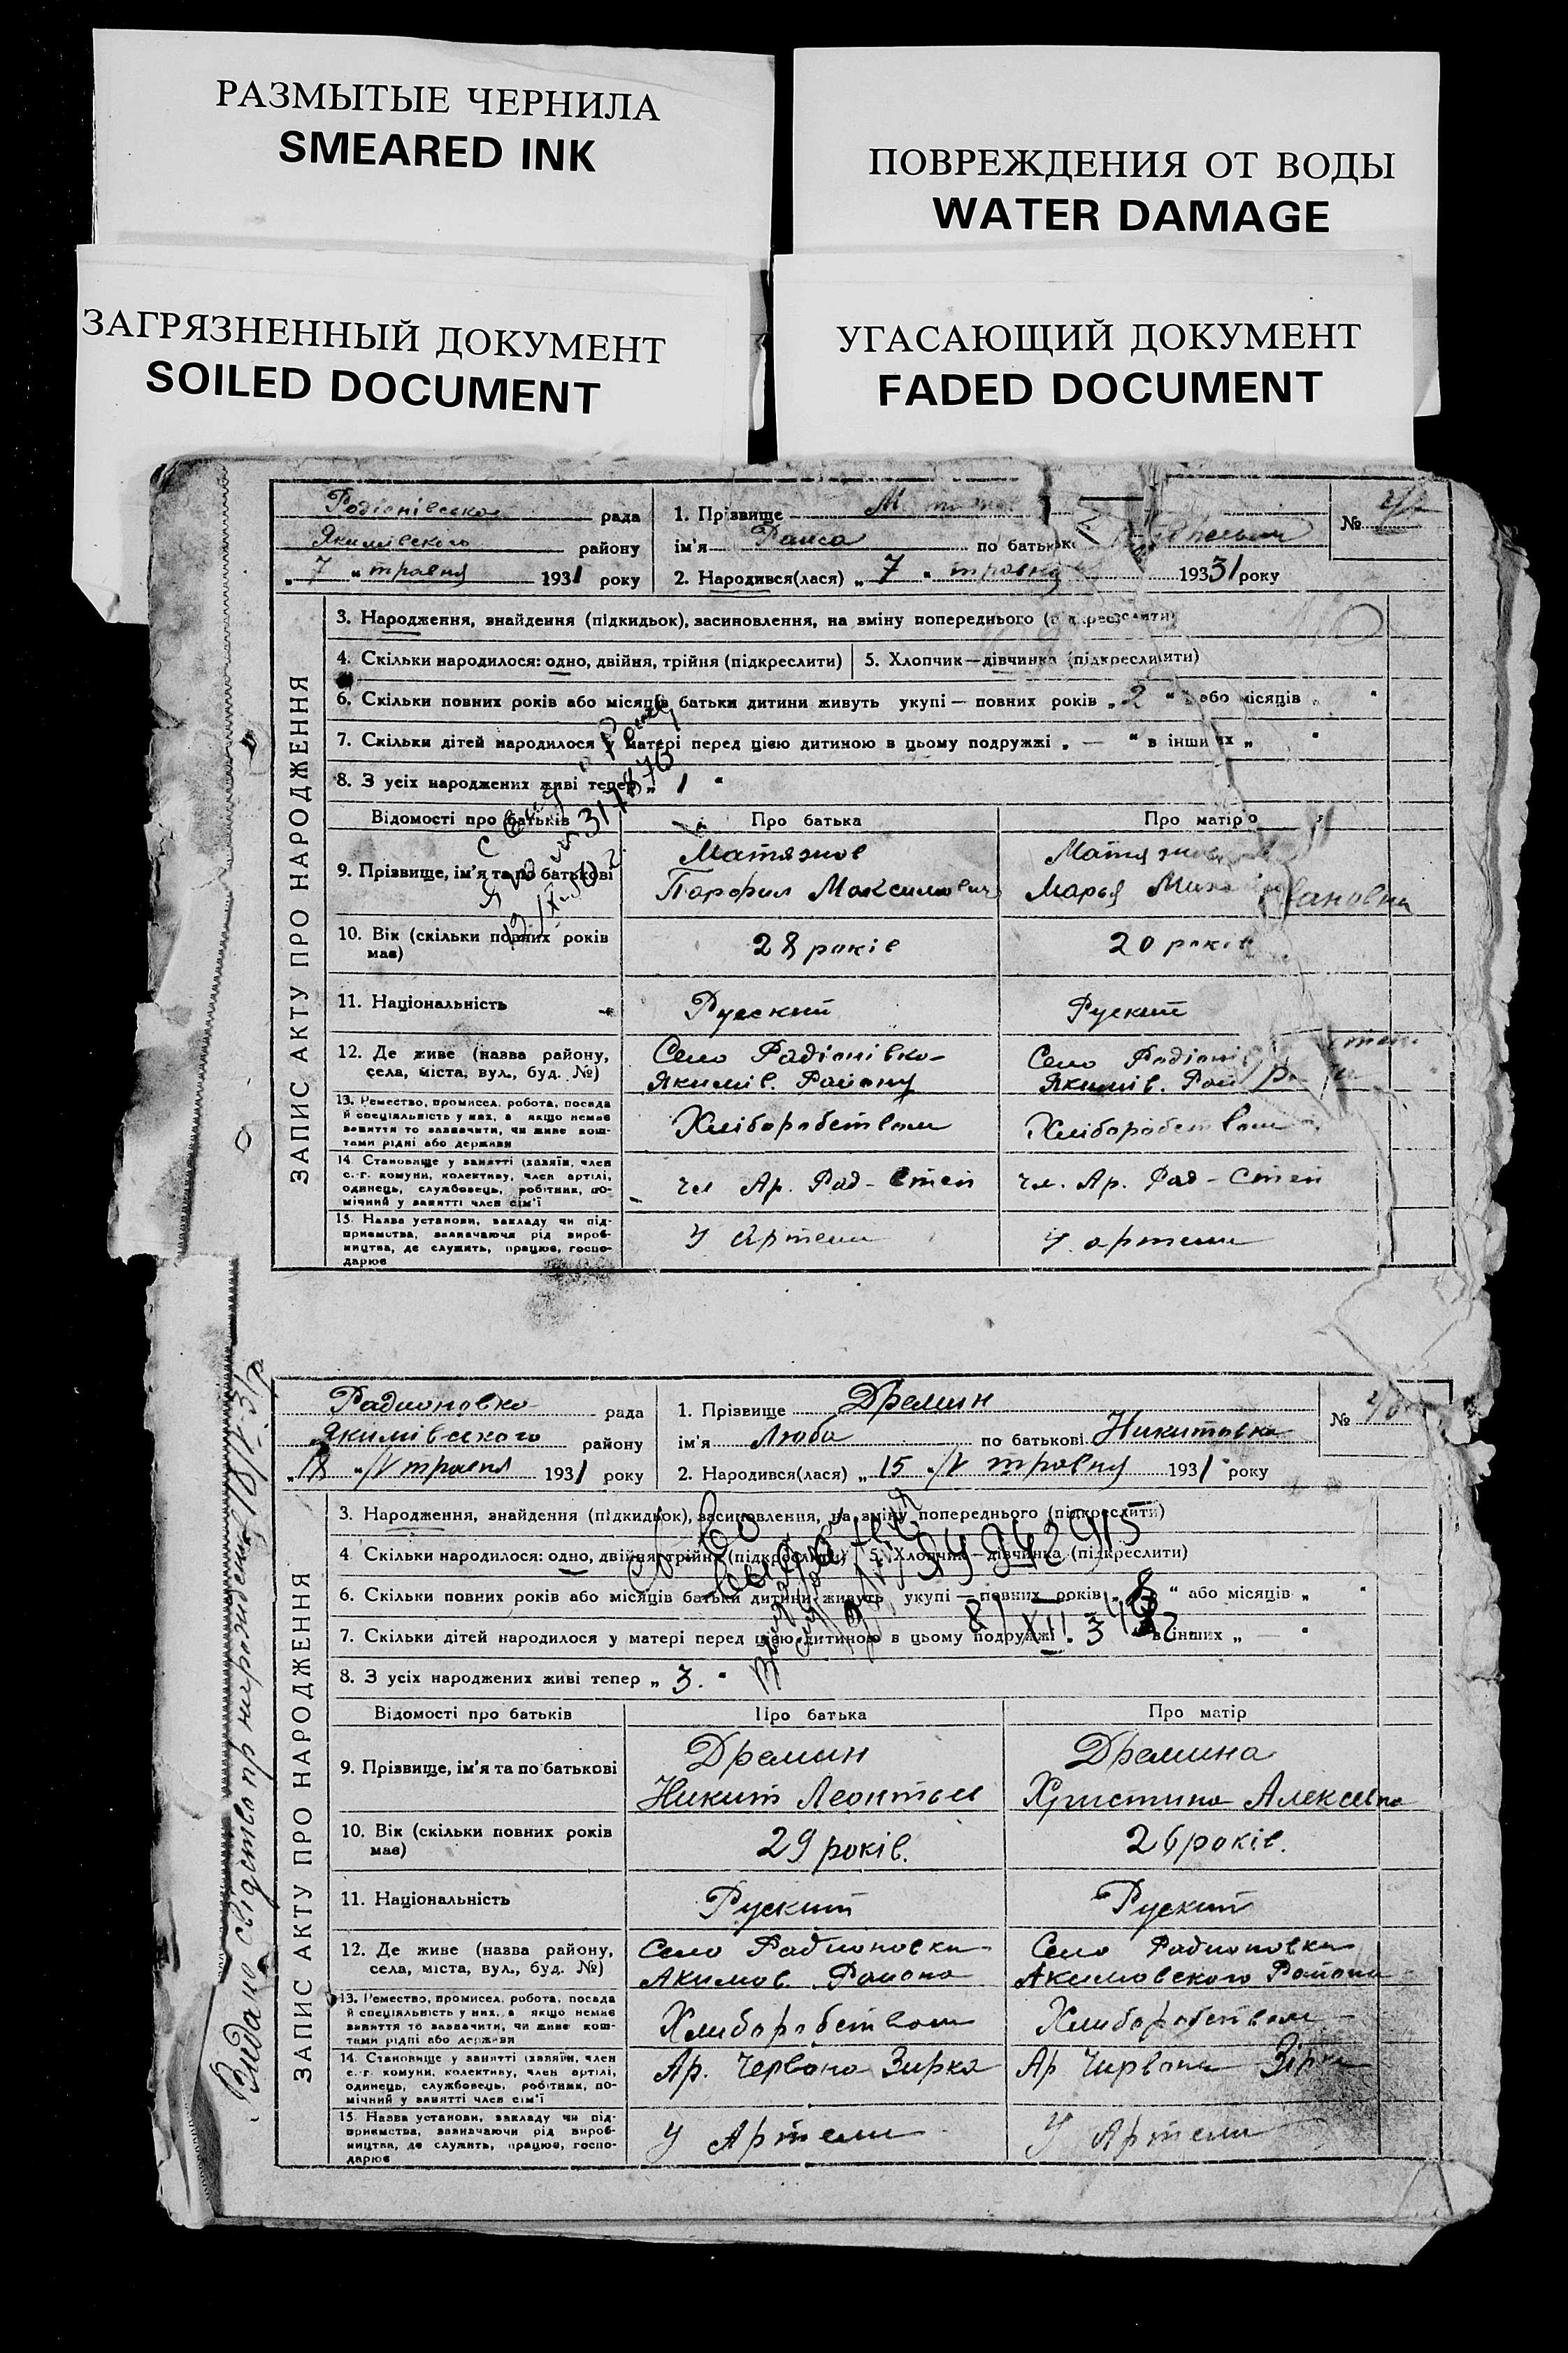 РАЗМЫТЫЕ ЧЕРНИЛА
SMEARED INK
ПОВРЕЖДЕНИЯ ОТ ВОДЫ
WATER DAMAGE
ЗАГРЯЗНЕННЫЙ ДОКУМЕНТ
SOILED DOCUMENT
УГАСАЮЩИЙ ДОКУМЕНТ
FADED DOCUMENT
ЗАПИС АКТУ ПРО НАРОДЖЕННЯ
Родіонівська рада
Якимівского району
„ 7 “ травня 1931 року
1. Прізвище
ім'я Раиса по батькові
2. Народився(лася) „ 7 “ травня 1931 року
№
3. Народження, знайдення (підкидьок), засиновлення, на зміну попереднього (підкреслити)
4. Скільки народилося: одно, двійня, трійня (підкреслити) 5. Хлопчик—дівчинка (підкреслити)
6. Скільки повних років або місяців батьки дитини живуть укупі — повних років „ 2 “ або місяців „ “
7. Скільки дітей народилося у матері перед цією дитиною в цьому подружжі „ — “ в інших „ “
8. З усіх народжених живі тепер „ 1 “
Відомості про батьків Про батька Про матір
9. Прізвище, ім'я та по батькові
Матяжов
Парфил Максимович
Марья
10. Вік (скільки повних років має) 28 років 20 років
11. Національність Русский Руский
12. Де живе (назва району, села, міста, вул., буд. №)
Село Радіонівка
Якимів. Району
Село
Якимів.
13. Ремество, промисел, робота, посада й спеціяльність у них, а якщо немає заняття то зазначити, чи живе коштами рідні або держави
Хліборобством Хліборобством
14. Становище у занятті (хазяїн, член с.-г. комуни, колективу, член артілі, одинець, службовець, робітник, помічний у занятті член сім'ї
чл Ар. Рад-Степ чл. Ар. Рад-Степ
15. Назва установи, закладу чи підприємства, зазначаючи рід виробництва, де служить, працює, господарює
У Артели У артели
ЗАПИС АКТУ ПРО НАРОДЖЕННЯ
Радионовка рада
Якимівского району
„ 18 “/V травня 1931 року
1. Прізвище Дремин
ім'я Люба по батькові Никитовна
2. Народився(лася) „ 15 “/V травня 1931 року
№
3. Народження, знайдення (підкидьок), засиновлення, на зміну попереднього (підкреслити)
4. Скільки народилося: одно, двійня, трійня (підкреслити) 5. Хлопчик—дівчинка (підкреслити)
6. Скільки повних років або місяців батьки дитини живуть укупі — повних років „ 8 “ або місяців „ “
7. Скільки дітей народилося у матері перед цією дитиною в цьому подружжі в інших „ — “
8. З усіх народжених живі тепер „ 3. “
Відомості про батьків Про батька Про матір
9. Прізвище, ім'я та по батькові
Дремин
Никит Леонтьев
Дремина
Христина Алексевна
10. Вік (скільки повних років має) 29 років. 26 років.
11. Національність Руский Руский
12. Де живе (назва району, села, міста, вул., буд. №)
Село Радионовка
Акимов. Района
Село Радионовка
Акимовского Района
13. Ремество, промисел, робота, посада й спеціяльність у них, а якщо немає заняття то зазначити, чи живе коштами рідні або держави
Хлиборобством Хлиборобством
14. Становище у занятті (хазяїн, член с.-г. комуни, колективу, член артілі, одинець, службовець, робітник, помічний у занятті член сім'ї
Ар. Червона Зирка Ар Чирвона Зірка
15. Назва установи, закладу чи підприємства, зазначаючи рід виробництва, де служить, працює, господарює
У Артели У Артели
Видано свідетво пр народження 18/V-31р